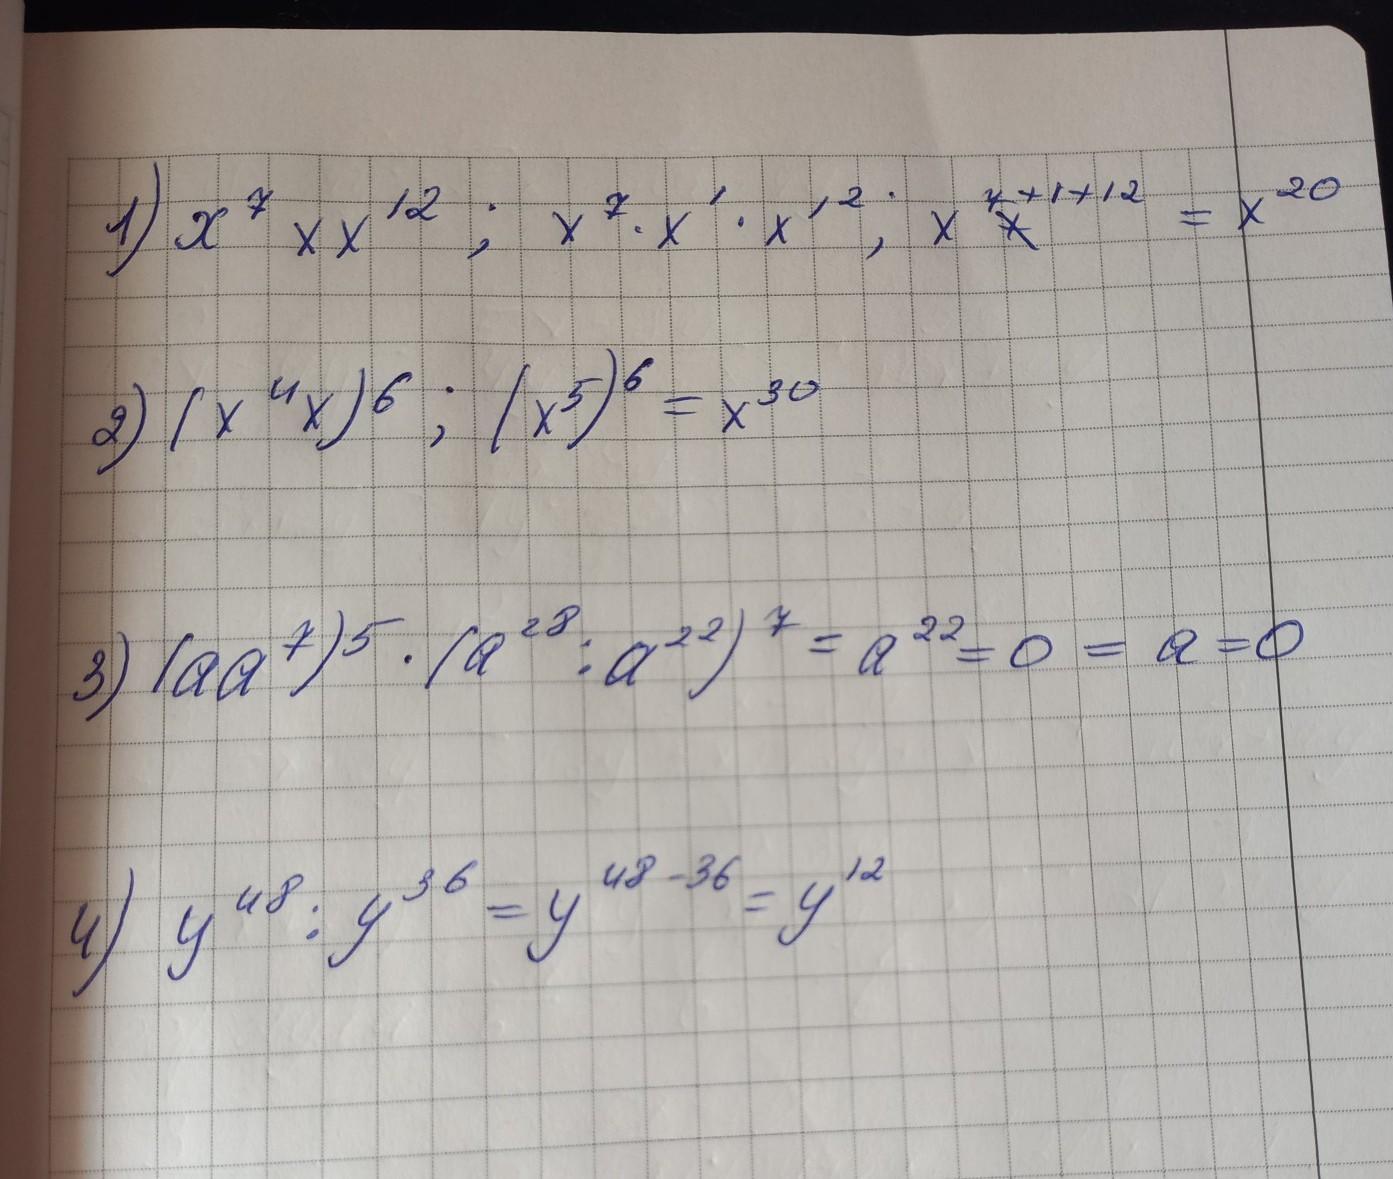 1) x⁷ x x¹² ; x⁷ · x¹ · x¹² ; x⁷⁺¹⁺¹² = x²⁰
2) (x⁴x)⁶ ; (x⁵)⁶ = x³⁰
3) (aa⁷)⁵ · (a²⁸ : a²²)⁷ = a²² = 0 = a = 0
4) y⁴⁸ : y³⁶ = y⁴⁸⁻³⁶ = y¹²